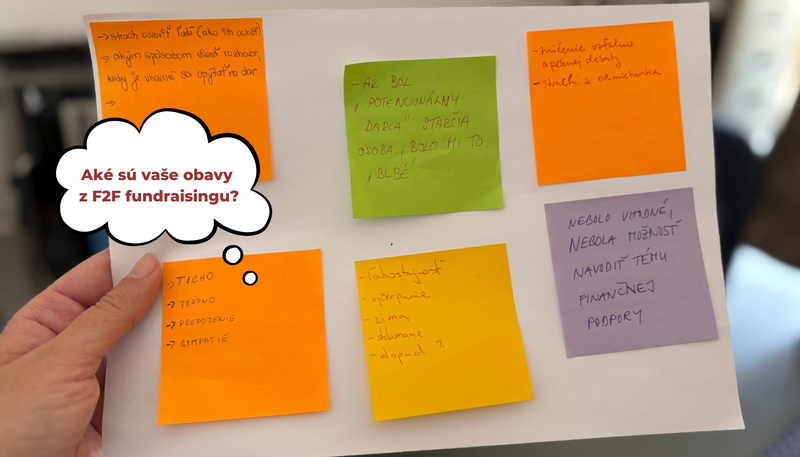 → strach osloviť ľudí (ako ich osloviť)
→ akým spôsobom viesť rozhovor,
kedy je vhodné sa opýtať na dar
→
- AK BOL
"POTENCIONÁLNY
DARCA" STARŠIA
OSOBA, BOLO MI TO
"BLBÉ"
- zničenie vzťahu
a peknej debaty
- strach z odmietnutia
Aké sú vaše obavy
z F2F fundraisingu?
→ TICHO
→ TRÁPNO
→ PREPOJENIE
→ SYMPATIE
- ľahostajnosť
- vyčerpanie
- zima
- sklamanie
- dopad ?
NEBOLO VHODNÉ,
NEBOLA MOŽNOSŤ
NAVODIŤ TÉMU
FINANČNEJ
PODPORY